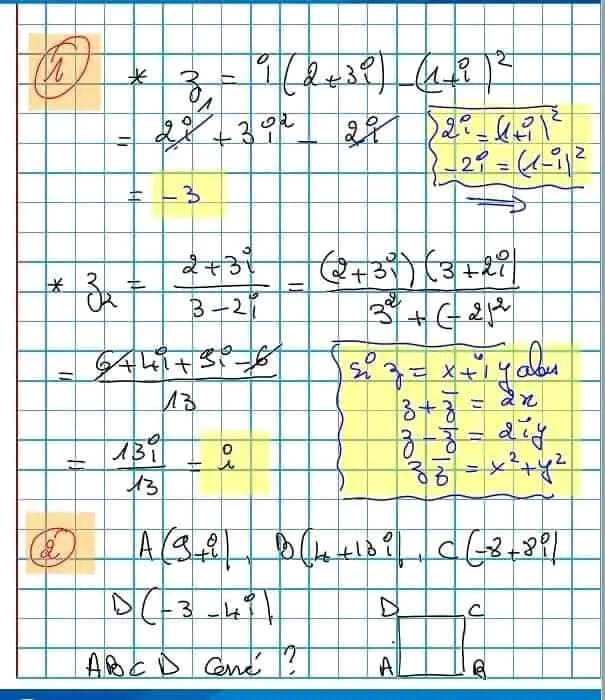 1
* z₁ = i(2+3i) - (1+i)²
= 2i + 3i² - 2i
2i = (1+i)²
-2i = (1-i)²
= -3
⟹
* z₂ = (2+3i)/(3-2i) = (2+3i)(3+2i)/(3²+(-2)²)
= (6+4i+9i-6)/13
si z = x+iy alors
z + z̄ = 2x
z - z̄ = 2iy
z z̄ = x²+y²
= 13i/13 = i
2
A(9+i), B(4+13i), C(-8+8i)
D(-3-4i)
D C
A B
ABCD Carré ?